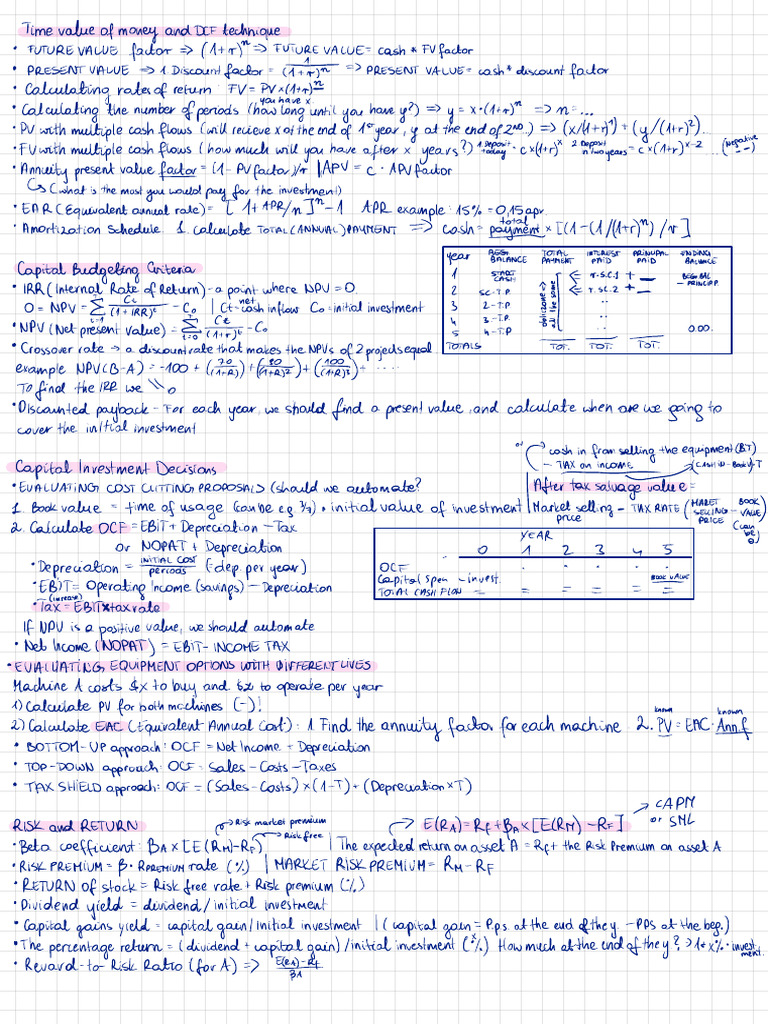 Time value of money and DCF technique
• FUTURE VALUE factor => (1+r)^n => FUTURE VALUE = cash * FV factor
• PRESENT VALUE => 1 Discount factor = 1/(1+r)^n => PRESENT VALUE = cash * discount factor
• Calculating rates of return: FV = PV×(1+r)^n
• Calculating the number of periods (how long until you have y?) => y = x·(1+r)^n => n=...
you have x
• PV with multiple cash flows (will recieve x at the end of 1st year, y at the end of 2nd..) => (x/(1+r)^1) + (y/(1+r)^2)...
• FV with multiple cash flows (how much will you have after x years?) 1 Deposit today = c×(1+r)^x 2 Deposit in two years = c×(1+r)^x-2 ... (Negative --)
• Annuity present value factor = (1-PV factor)/r | APV = c · APV factor
↳ (what is the most you would pay for the investment)
• EAR (Equivalent annual rate) = [1+ APR/n]^n -1 APR example: 15% = 0,15 apr
• Amortization Schedule 1. calculate TOTAL (ANNUAL) PAYMENT => cash = total payment × [(1-(1/(1+r)^n)/r]
year BEG. BALANCE TOTAL PAYMENT INTEREST PAID PRINCIPAL PAID ENDING BALANCE
1 START CASH ← r·S.C.1 + — BEG BAL - PRINCIPP.
2 SC-T.P. ← r·S.C.2 + —
3 2-T.P ..
4 3-T.P. ..
5 4-T.P .. 0.00.
all the same
TOTALS TOT. TOT. TOT.
Capital Budgeting Criteria
• IRR (Internal Rate of Return) - a point where NPV = 0.
0 = NPV = Σ t=1 n Ct/(1+IRR)^t - C0 | Ct - net cash inflow C0 = initial investment
• NPV (Net present value) = Σ t=0 n Ct/(1+r)^t - C0
• Crossover rate → a discount rate that makes the NPVs of 2 projects equal
example NPV(B-A) = -100 + (70/(1+R)) + (80/(1+R)^2) + (100/(1+R)^3) + ....
To find the IRR we \\ 0
• Discounted payback - For each year, we should find a present value, and calculate when are we going to
cover the initial investment
Capital Investment Decisions
or cash in from selling the equipment (BIT)
- TAX on income (CASH IN - BOOK V)·T
• EVALUATING COST CUTTING PROPOSALS (should we automate?
After tax salvage value =
1. Book value = time of usage (can be e.g 3/4) · initial value of investment
Market selling price - TAX RATE (MARKET SELLING PRICE - BOOK VALUE (can be 0)
2. Calculate OCF = EBIT + Depreciation - Tax
or NOPAT + Depreciation
YEAR
0 1 2 3 4 5
OCF . . . . .
Capital Spen - invest. BOOK VALUE
TOTAL CASH FLOW = = = = = =
• Depreciation = INITIAL COST/periods (=dep. per year)
• EBIT = Operating Income (savings) - Depreciation
(increase)
• Tax = EBIT × tax rate
If NPV is a positive value, we should automate
• Net Income (NOPAT) = EBIT - INCOME TAX
• EVALUATING EQUIPMENT OPTIONS WITH DIFFERENT LIVES
Machine A costs $x to buy and $z to operate per year
1) Calculate PV for both machines (-)!
2) Calculate EAC (Equivalent Annual Cost): 1 Find the annuity factor for each machine 2. PV = EAC · Ann.f
known known
• BOTTOM-UP approach: OCF = Net Income + Depreciation
• TOP-DOWN approach: OCF = Sales - Costs - Taxes
• TAX SHIELD approach: OCF = (Sales - Costs) × (1-T) + (Depreciation × T)
RISK and RETURN
→ Risk market premium
E(RA) = RF + βA × [E(RM) - RF]
→ CAPM
or SML
• Beta coefficient: βA × [E(RM) - RF) → Risk free | The expected return on asset A = RF + the Risk Premium on asset A
• RISK PREMIUM = β · RPREMIUM rate (%) | MARKET RISK PREMIUM = RM - RF
• RETURN of stock = Risk free rate + Risk premium (%)
• Dividend yield = dividend / initial investment
• Capital gains yield = capital gain / initial investment | (capital gain = P.p.s at the end of the y. - PPS at the beg.)
• The percentage return = (dividend + capital gain) / initial investment (x%) How much at the end of the y? → 1+x% · investment.
• Reward-to Risk Ratio (for A) => E(RA)-RF/βA